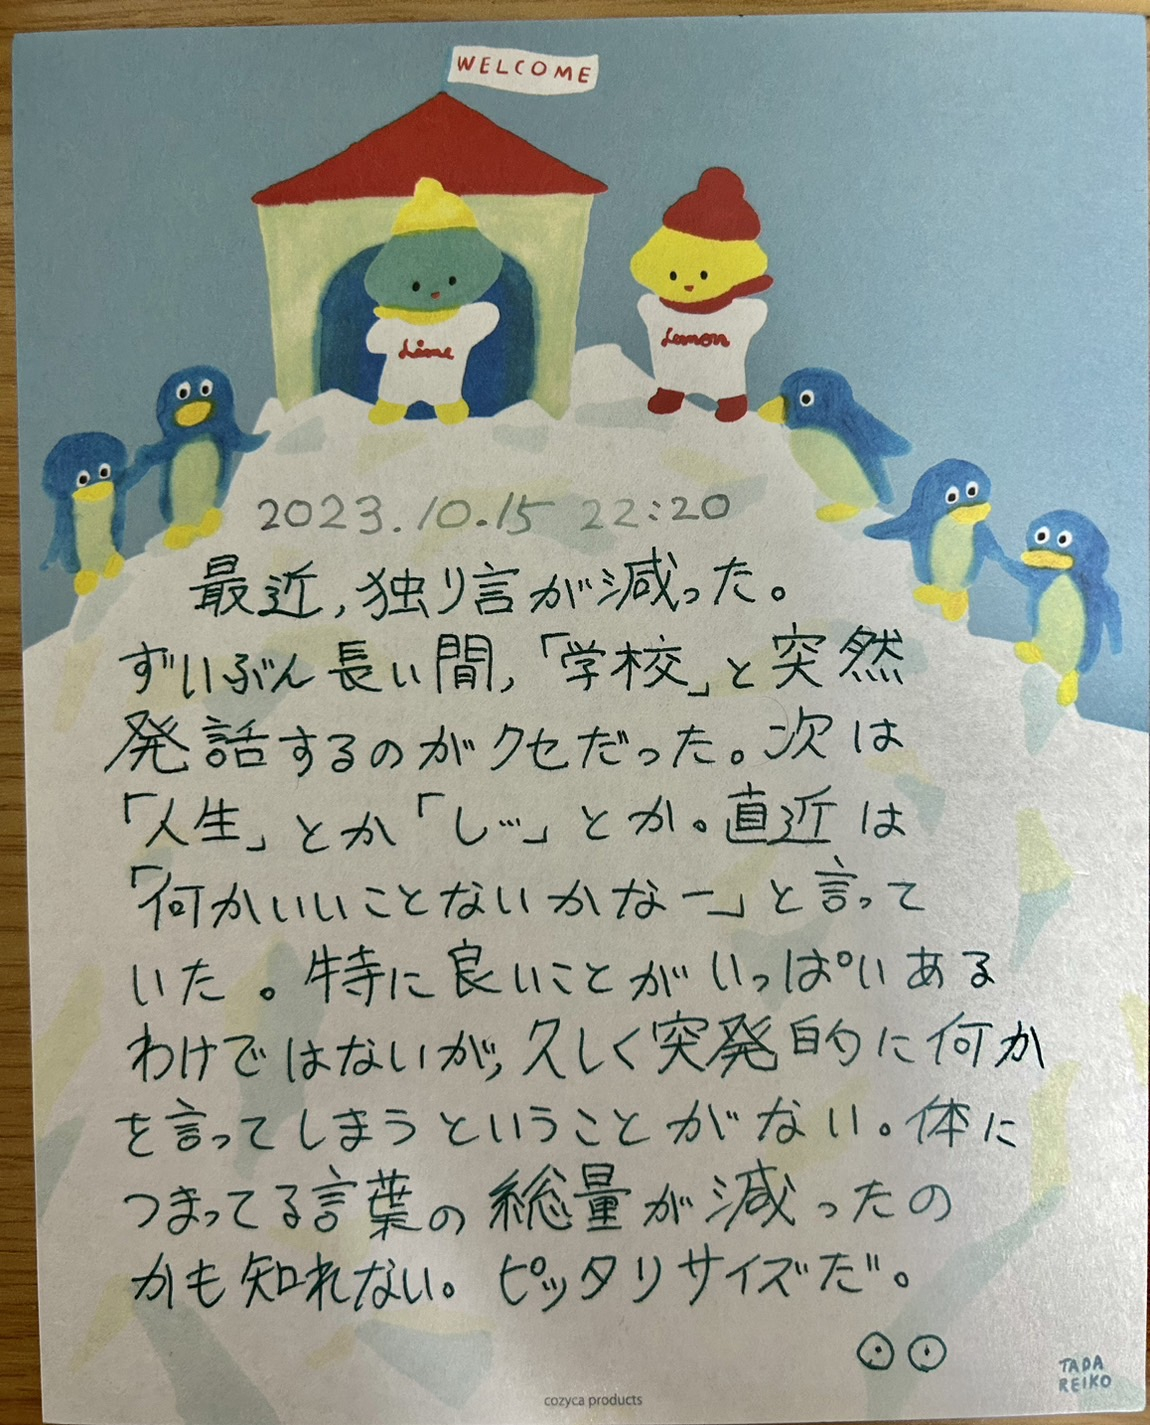 WELCOME
Lime
Lemon
2023.10.15 22:20
最近,独り言が減った。
ずいぶん長い間,「学校」と突然
発話するのがクセだった。次は
「人生」とか「し…」とか。直近は
「何かいいことないかなー」と言って
いた。特に良いことがいっぱいある
わけではないが,久しく突発的に何か
を言ってしまうということがない。体に
つまってる言葉の総量が減ったの
かも知れない。ピッタリサイズだ。
TADA
REIKO
cozyca products